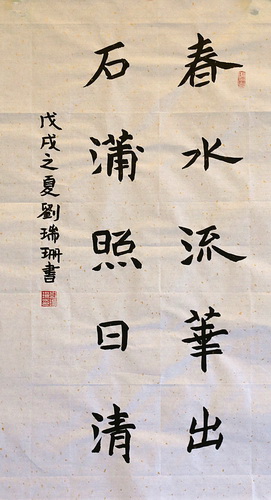 春水流華出
石蒲照日清
戊戌之夏劉瑞珊書